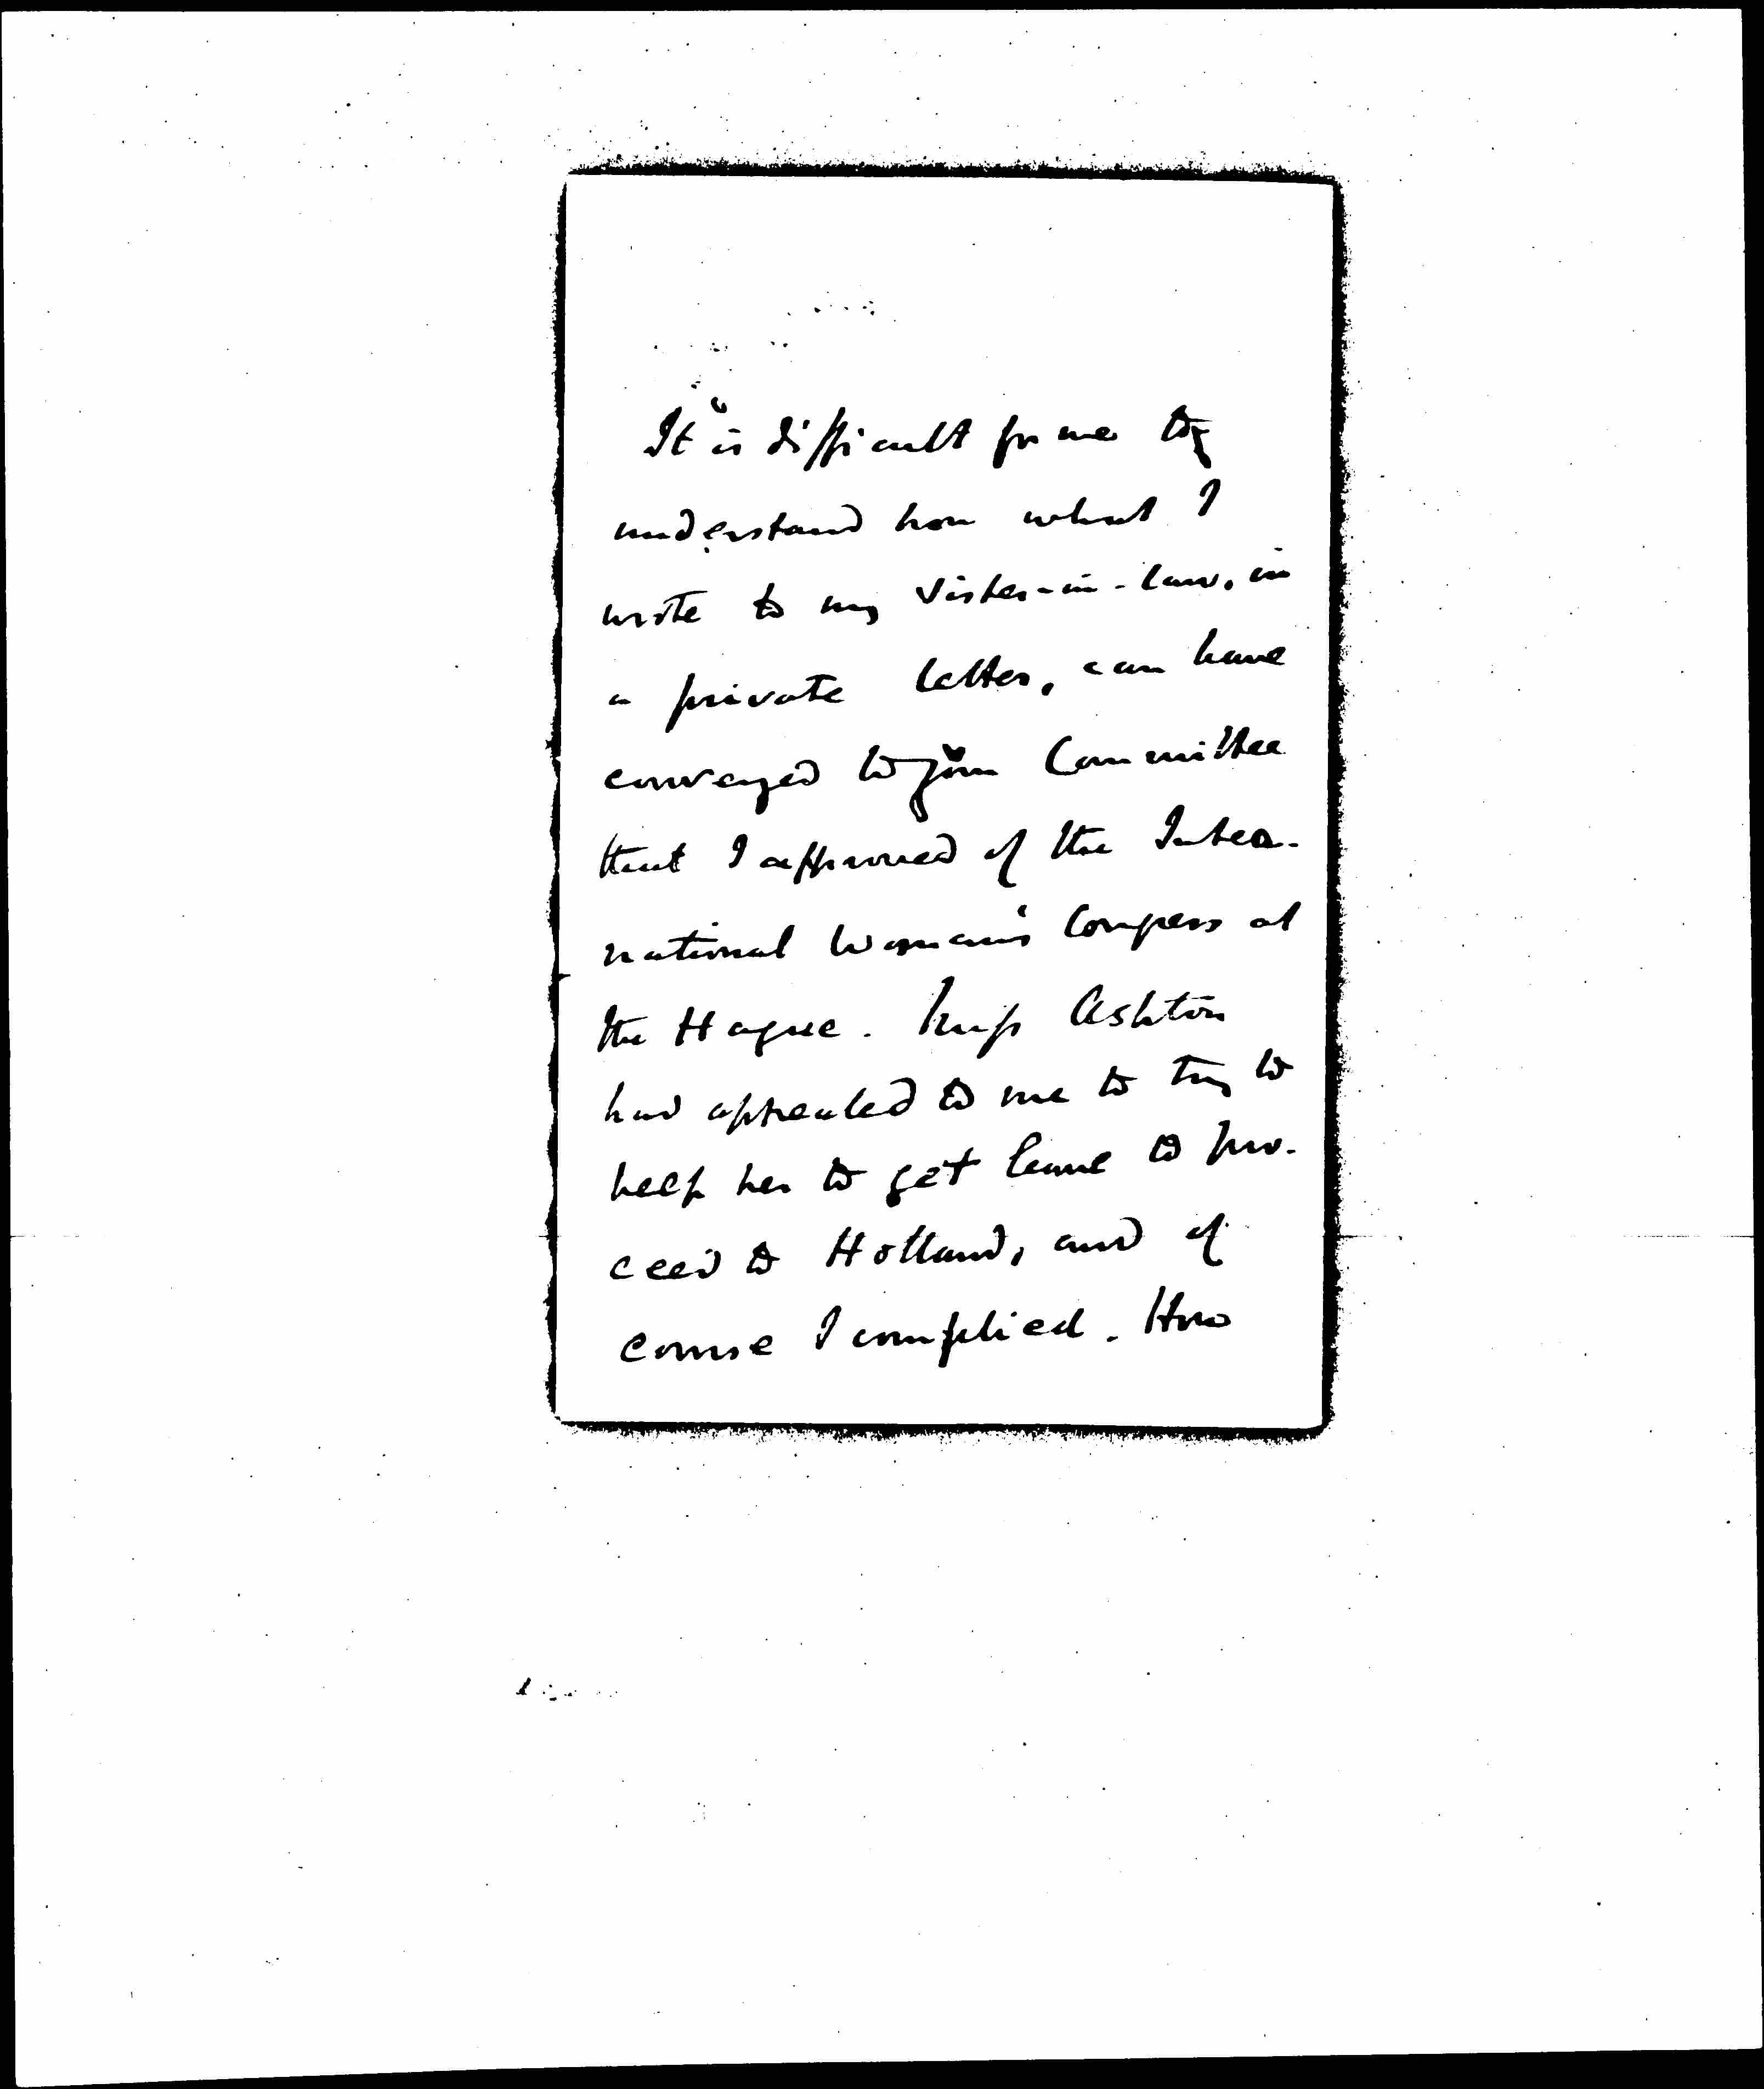 It is difficult for me to
understand how what I
wrote to my sister-in-law, in
a private letter, can have
conveyed to your Committee
that I approved of the Inter-
national Women's Congress at
the Hague. Miss Ashton
had appealed to me to try to
help her to get leave to pro-
ceed to Holland, and of
course I complied. How